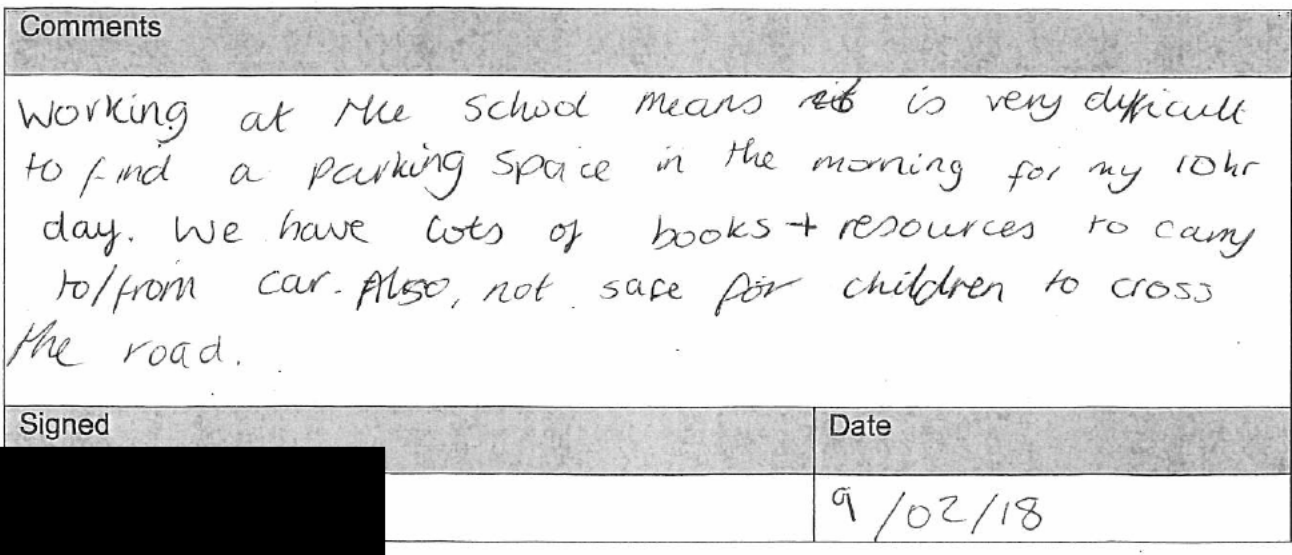 Comments
Working at the school means it is very difficult
to find a parking space in the morning for my 10hr
day. We have lots of books + resources to carry
to/from car. Also, not safe for children to cross
the road.
Signed
Date
9/02/18